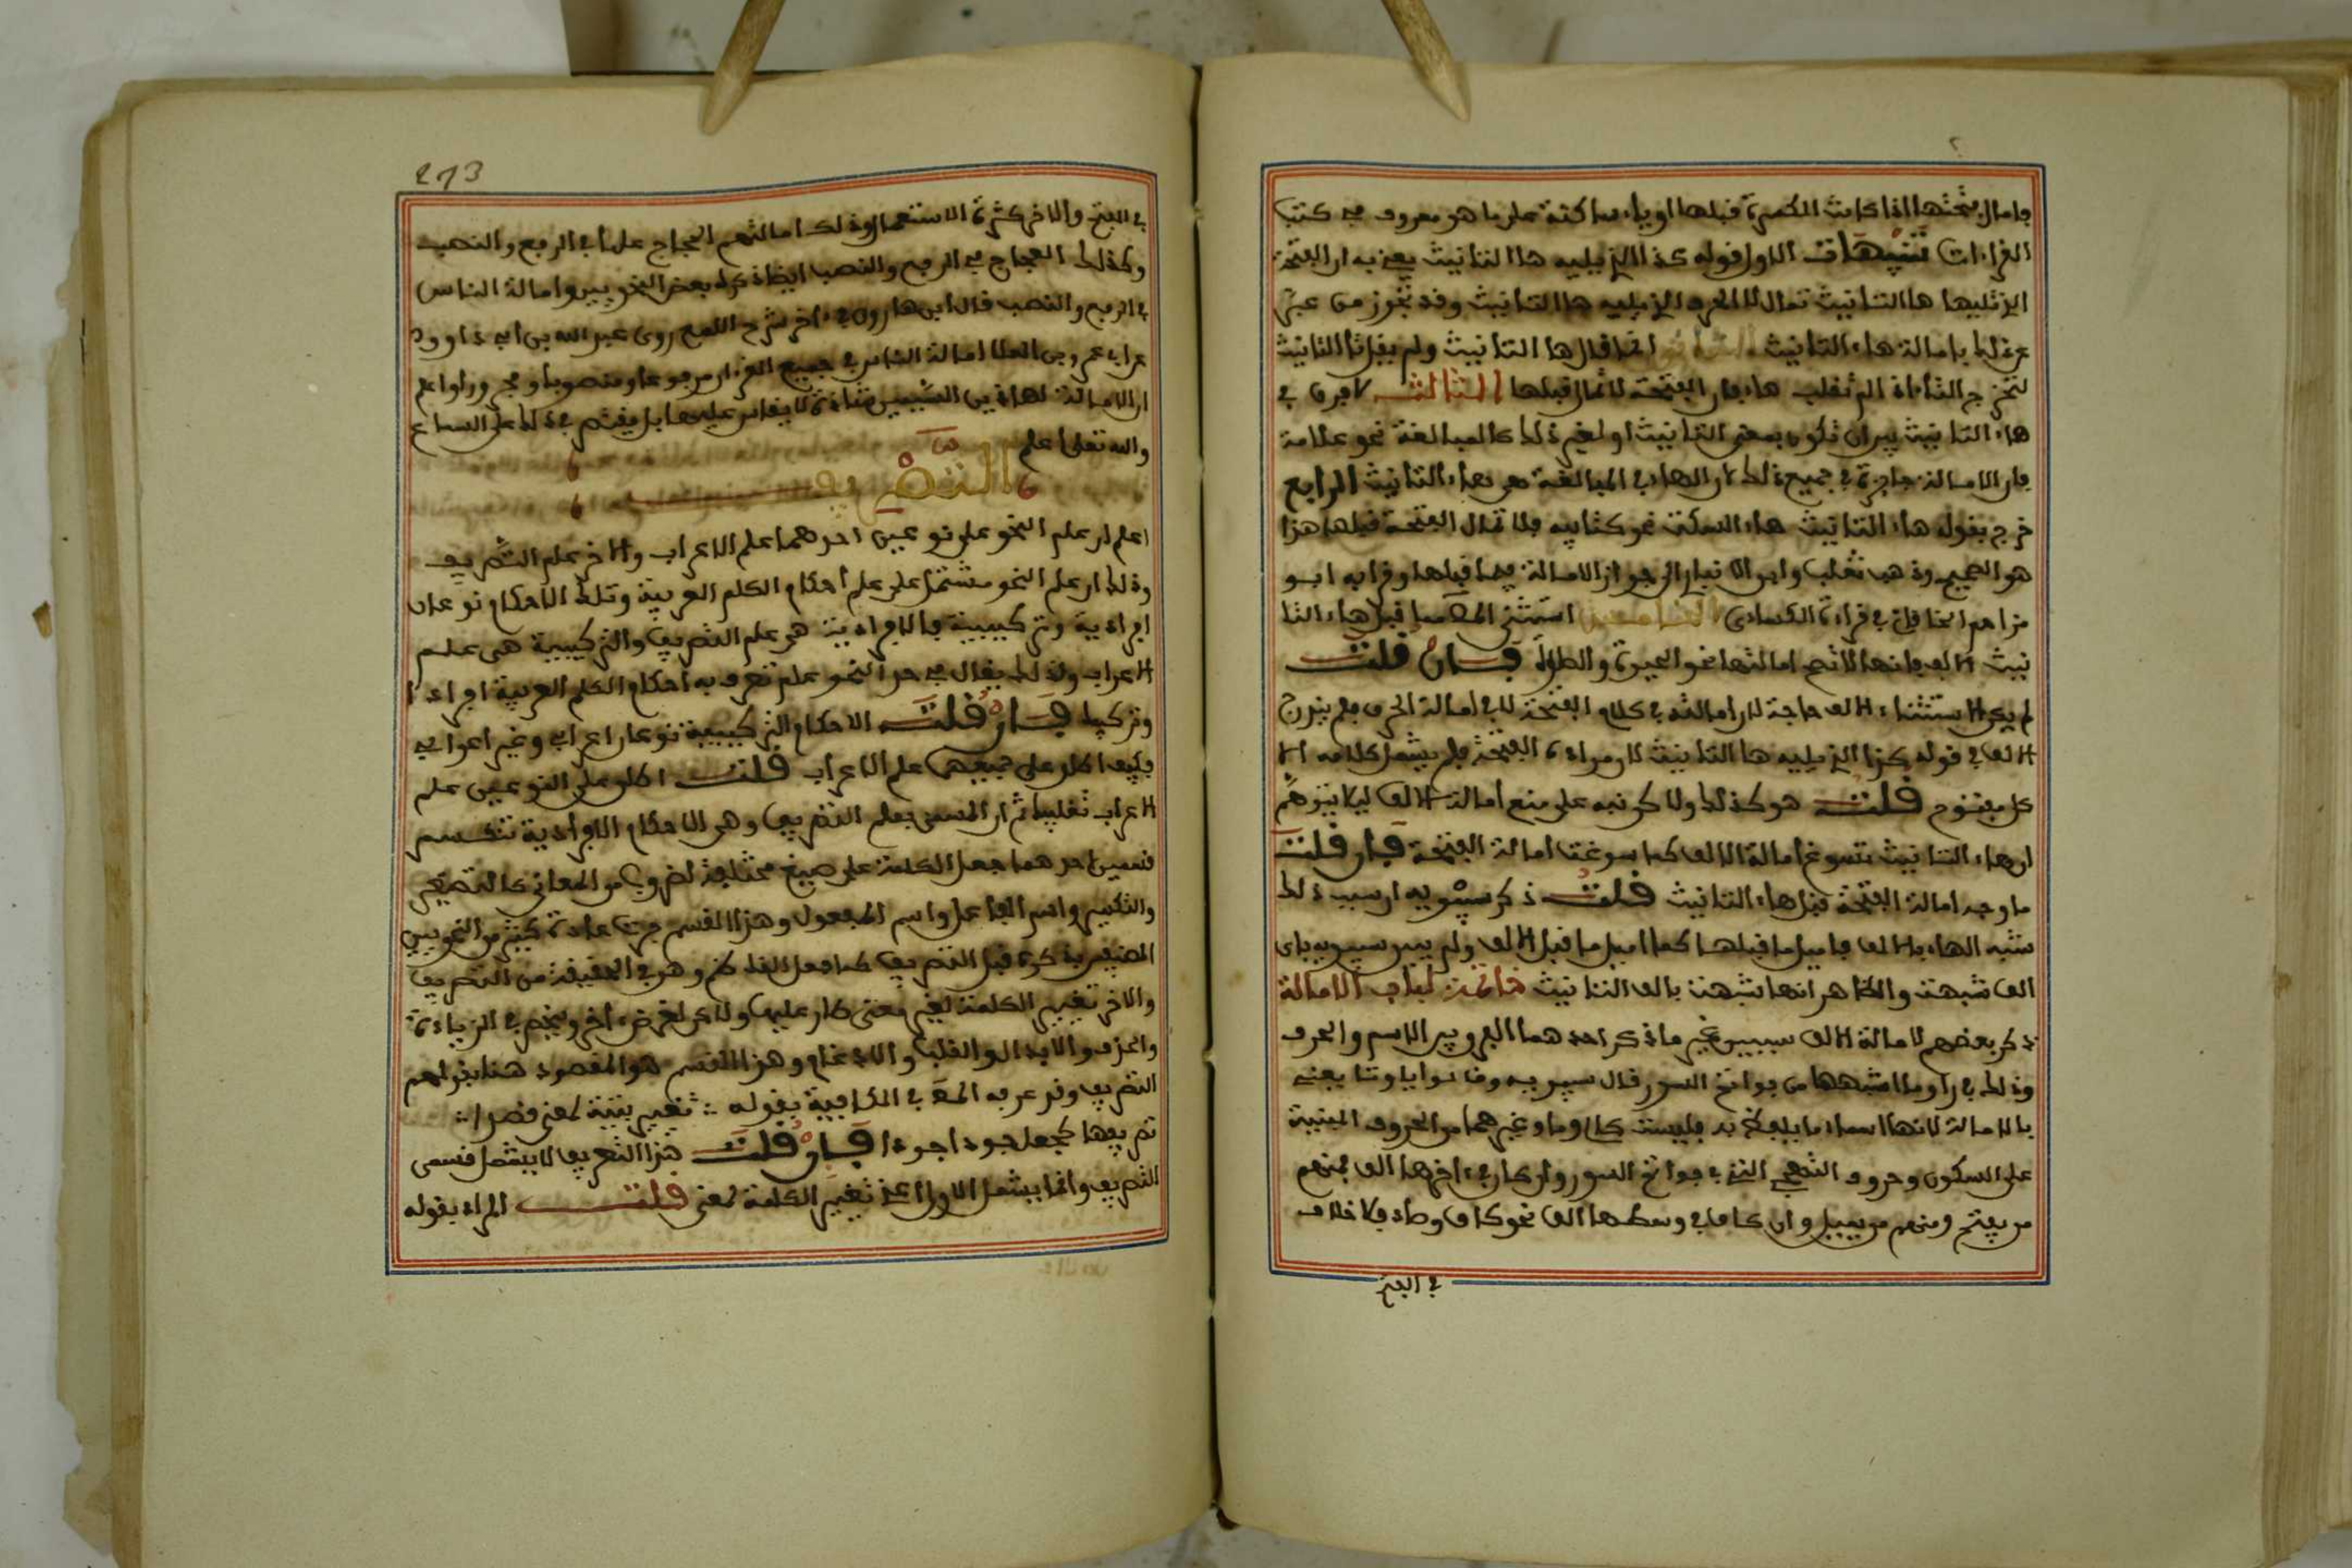 فامال فتحتها اذا كانت الكسرة قبلها او ياء ساكنة على ما هو معروف في كتب
القراءات تنبيهات الاول قوله كذا الذي يليه ها التانيث يعني به ان الفتحة
التي تليها ها التانيث تمال لا الحرف الذي يليه ها التانيث وقد تجوز من عبر
عن ذلك بامالة هاء التانيث الثاني انما قال ها التانيث ولم يقل تا التانيث
لتخرج التاء التي لم تقلب هاء فان الفتحة لا تمال قبلها الثالث لا فرق في
هاء التانيث بين ان تكون بمعنى التانيث او لغير ذلك كالمبالغة نحو علامة
فان الامالة جايزة في جميع ذلك لان الهاء في المبالغة هي هاء التانيث الرابع
خرج بقوله هاء التانيث هاء السكت نحو كتابيه فلا تمال الفتحة قبلها هذا
هو الصحيح وذهب ثعلب وابن الانباري الى جواز الامالة فيما قبلها وقرا به ابو
مزاحم الخاقاني في قراءة الكسائي الخامس استثنى المص مما قبل هاء التا
نيث الالف فانها لا تصح امالتها نحو الحيوة والطول فان قلت
لم يكن لاستثناء الالف حاجة لان امالته في كلام الفتحة لا في امالة الحرف فلم يندرج
الالف في قوله كذا الذي يليه ها التانيث لان مراده الفتحة فلم يشمل كلامه الا
كل مفتوح قلت هو كذلك ولاكن نبه على منع امالة الالف ليلا يتوهم
ان هاء التانيث تسوغ امالة الالف كما سوغت امالة الفتحة فان قلت
ما وجه امالة الفتحة قبل هاء التانيث قلت ذكر سيبويه ان سبب ذلك
شبه الهاء بالالف فاميل ما قبلها كما اميل ما قبل الالف ولم يبين سيبويه باي
الف شبهت والظاهر انها شبهت بالف التانيث خاتمة لباب الامالة
ذكر بعضهم لامالة الالف سببين غير ما ذكر احدهما الفرق بين الاسم والحرف
وذلك في را وما اشبهها من فواتح السور قال سيبويه وقالوا يا وتا يعني
بالامالة لانها اسماء ما يلفظ به فليست كالا وما وغيرهما من الحروف المبنية
على السكون وحروف التهجي التي في فواتح السور وان كان في اخرها الف فمنهم
من يفتح ومنهم من يميل وان كان في وسطها الف نحو كاف وصاد فلا خلاف
في الفتح
273
في الفتح والاخر كثرة الاستعمال وذلك امالتهم الحجاج علما في الرفع والنصب
وكذلك العجاج في الرفع والنصب ايضا ذكره بعض النحويين وامالة الناس
في الرفع والنصب قال ابن هارون في ءاخر شرح اللمع روى عبد الله بن ابي داوود
عن ابي عمرو بن العلا امالة الناس في جميع القرءان مرفوعا ومنصوبا ومجرورا واعلم
ان الامالة لهاذين السببين شاذة لا يقاس عليها بل يقتصر في ذلك على السماع
والله تعلى اعلم
التصريف
اعلم ان علم النحو على نوعين احدهما علم الاعراب والاخر علم التصريف
وذلك ان علم النحو مشتمل على علم احكام الكلم العربية وتلك الاحكام نوعان
افرادية وتركيبية فالافرادية هي علم التصريف والتركيبية هي علم
الاعراب ولذلك يقال في حد النحو علم تعرف به احكام الكلم العربية افرادا
وتركيبا فان قلت الاحكام التركيبية نوعان اعرابي وغير اعرابي
فكيف اطلق على جميعها علم الاعراب قلت اطلق على النوعين علم
الاعراب تغليبا ثم ان المسمى بعلم التصريف وهي الاحكام الافرادية تنقسم
قسمين احدهما جعل الكلمة على صيغ مختلفة لضروب من المعاني كالتصغير
والتكسير واسم الفاعل واسم المفعول وهذا القسم جرت عادة كثير من النحويين
المصنفين بذكره قبل التصريف كما فعل الناظم وهو في الحقيقة من التصريف
والاخر تغيير الكلمة لغير معنى طار عليها ولاكن لغرض ءاخر وينحصر في الزيادة
والحذف والابدال والقلب والادغام وهذا القسم هو المقصود هنا بقولهم
التصريف وقد عرفه المص في الكافية بقوله ∴ تغيير بنية لمعنى قصدا ∴
تصريفها كجعل جود اجودا فان قلت هذا التعريف لا يشمل قسمي
التصريف وانما يشمل الاول اعني تغيير الكلمة لمعنى قلت المراد بقوله